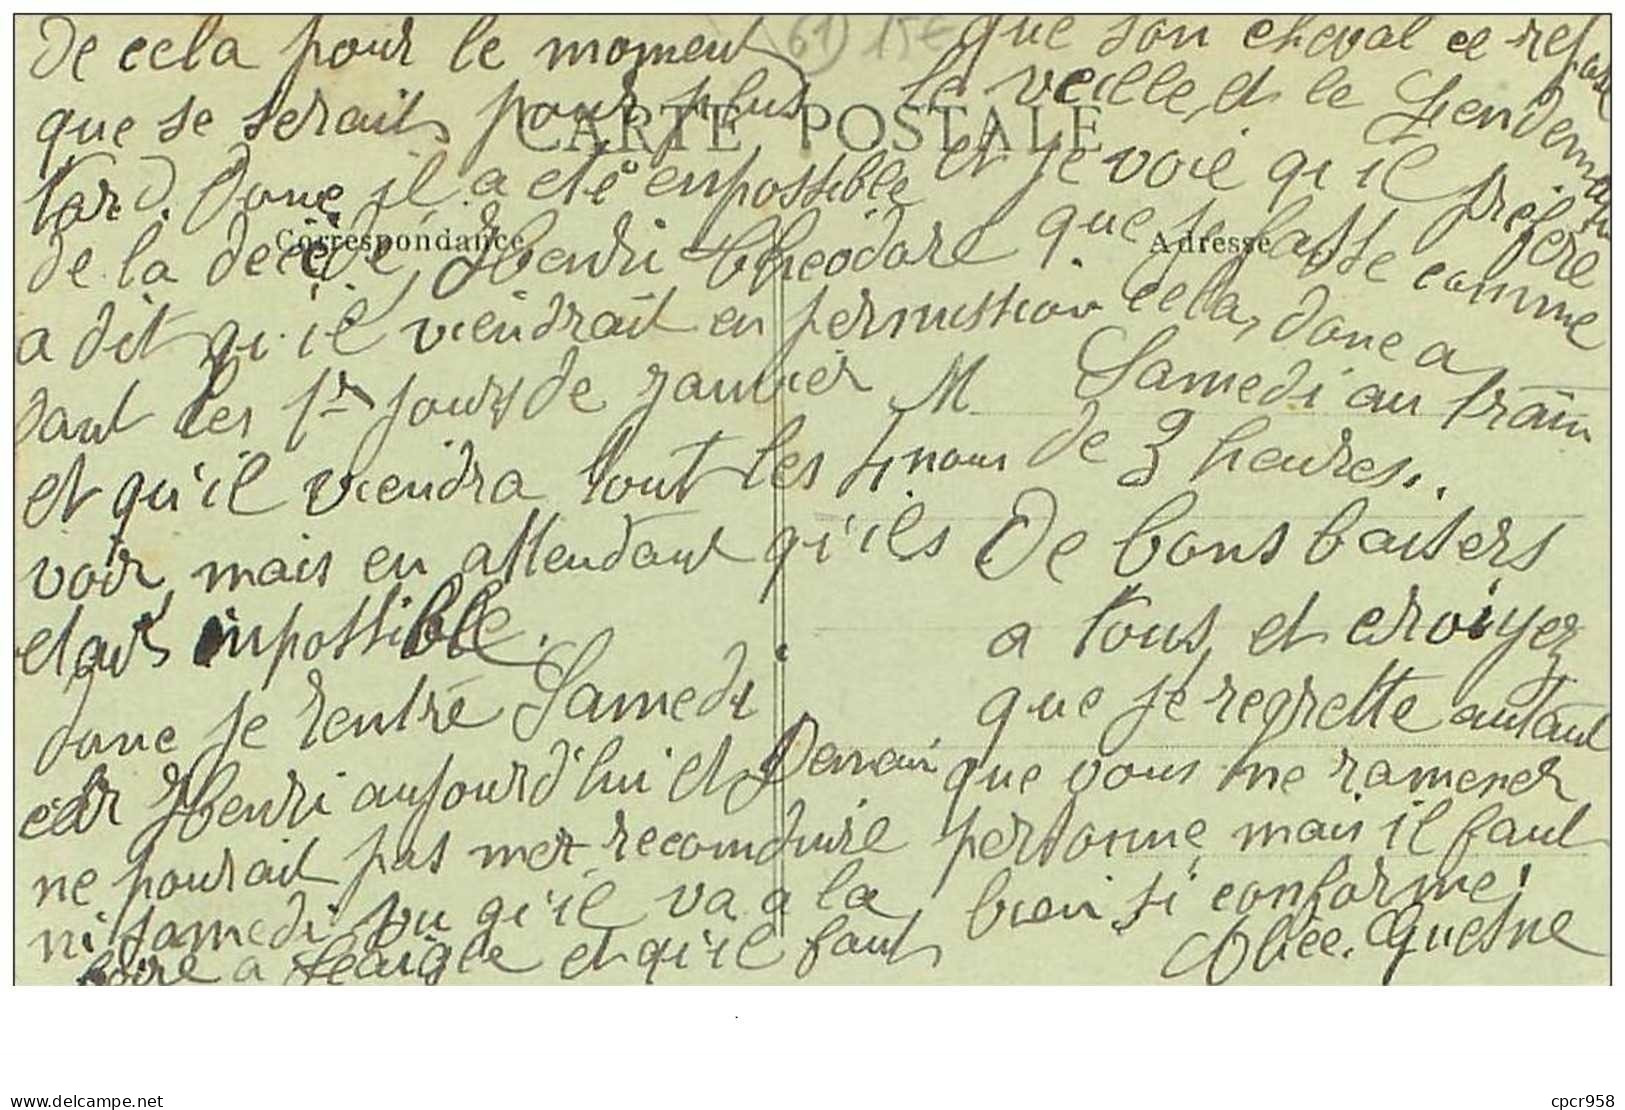 (61) 15€
CARTE POSTALE
Correspondance
Adresse
M
de cela pour le moment
que se serait pour plus
tard. Donc il a eté enpossible
de la decidé, Henri théodore
a dit qu'il viendrait en permission
dant les 1er jours de janvier
et qu'il viendra tout les 4 nous
voir, mais en attendant qu'ils
etait inpossible.
donc je rentré Samedi
car Henri aujourd'hui et Demain
ne pourait pas met recondruire
ni samedi vu qu'il va a la
foire a Leaigle et qu'il faut
que son cheval ce repose
le veille, et le Lendemain
et je voie qu'il préfère
que je fasse comme
cela, donc a
Samedi au train
de 3 heures..
De bons baisers
a tous, et croiyez
que je regrette autant
que vous ne ramener
personne, mais il faut
bien si conforme!
Quesne
Delcampe.net
cpcr958